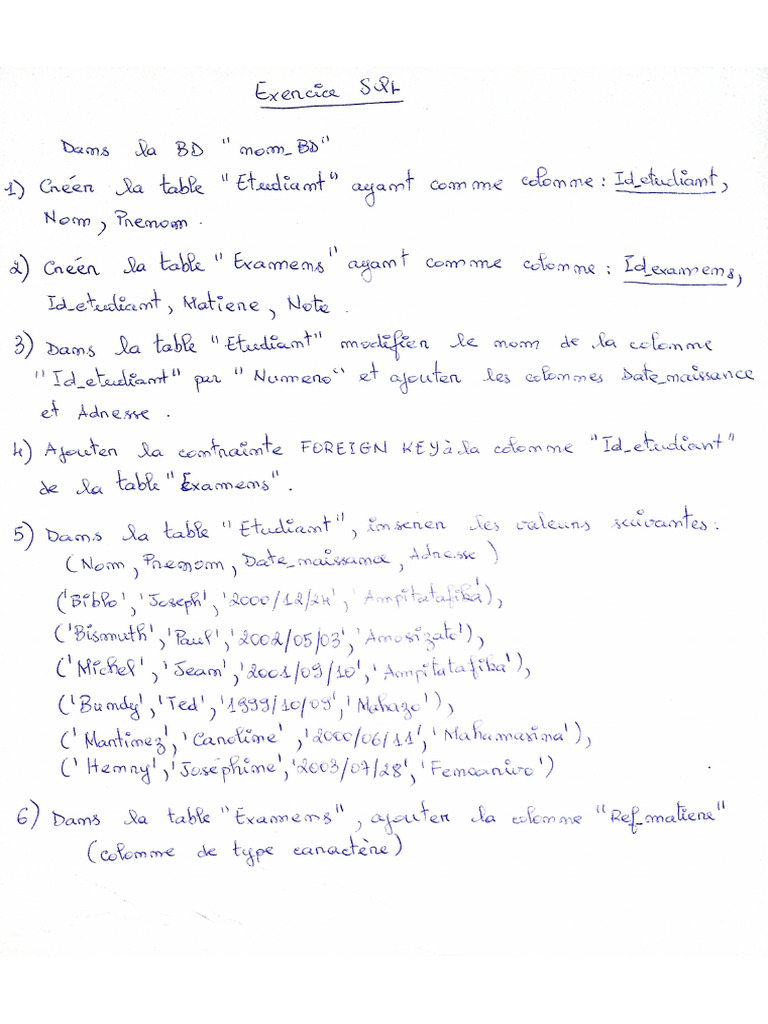 Exercice SQL
Dans la BD "nom_BD"
1) Créer la table "Etudiant" ayant comme colonne : Id_etudiant,
Nom, Prenom.
2) Créer la table "Examens" ayant comme colonne : Id_examens,
Id_etudiant, Matiere, Note.
3) Dans la table "Etudiant" modifier le nom de la colonne
"Id_etudiant" par "Numero" et ajouter les colonnes Date_naissance
et Adresse.
4) Ajouter la contrainte FOREIGN KEY à la colonne "Id_etudiant"
de la table "Examens".
5) Dans la table "Etudiant", inserer les valeurs suivantes :
(Nom, Prenom, Date_naissance, Adresse)
('Biblo', 'Joseph', '2000/12/24', 'Ampitatafika'),
('Bismuth', 'Paul', '2002/05/03', 'Amosizato'),
('Michel', 'Jean', '2001/09/10', 'Ampitatafika'),
('Bundy', 'Ted', '1999/10/09', 'Mahazo'),
('Martinez', 'Caroline', '2000/06/11', 'Mahamasina'),
('Henry', 'Joséphine', '2003/07/28', 'Fenoarivo')
6) Dans la table "Examens", ajouter la colonne "Ref_matiere"
(colonne de type caractère)